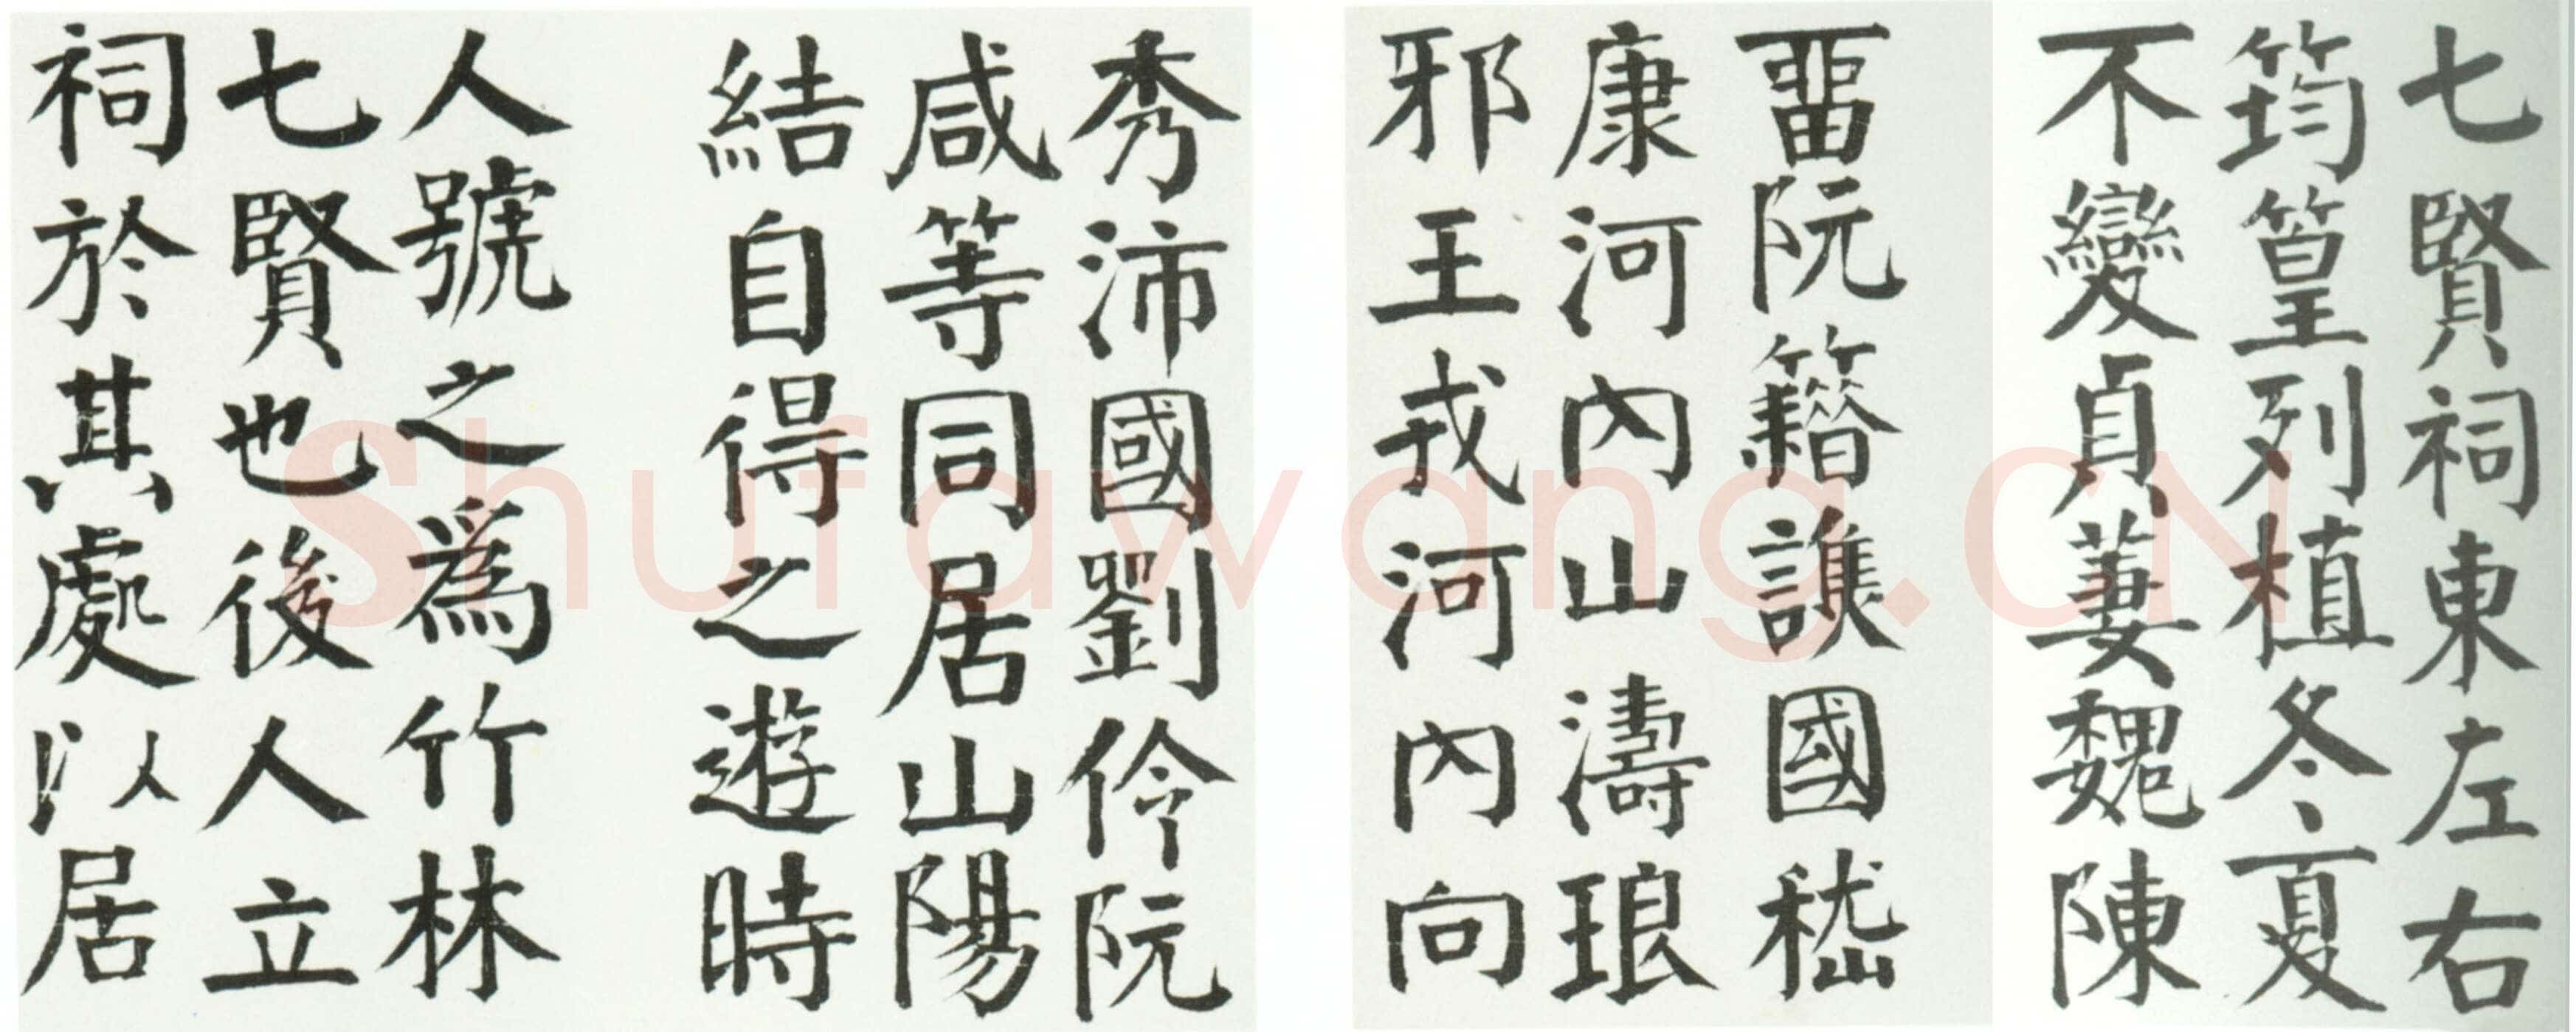 七賢祠東左右
筠篁列植冬夏
不變貞萋魏陳
畱阮籍譙國嵇
康河內山濤琅
邪王戎河內向
秀沛國劉伶阮
咸等同居山陽
結自得之遊時
人號之為竹林
七賢也後人立
祠於其處以居
Shufawang.CN